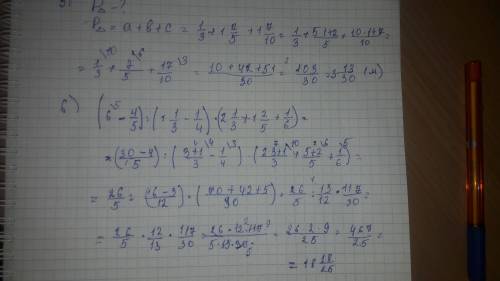 P△ - ?
P△ = a + b + c = 1/3 + 1 2/5 + 1 7/10 = 1/3 + 5·1+2/5 + 10·1+7/10 =
= 1/3 \10 + 7/5 \6 + 17/10 \3 = 10 + 42 + 51/30 = 103/30 = 3 13/30 (м)
б) (6 \5 - 4/5) : (1 1/3 - 1/4) · (2 1/3 + 1 2/5 + 1/6) =
= (30-4/5) : (3+1/3 \4 - 1/4 \3) · (2·3+1/3 \10 + 5+2/5 \6 + 1/6 \5) =
= 26/5 : (16-3/12) · (70+42+5/30) = 26/5 : 13/12 · 117/30 =
= 26/5 · 12/13 · 117/30 = 26·12·117/5·13·30 = 26·2·9/25 = 467/25 =
= 18 18/25